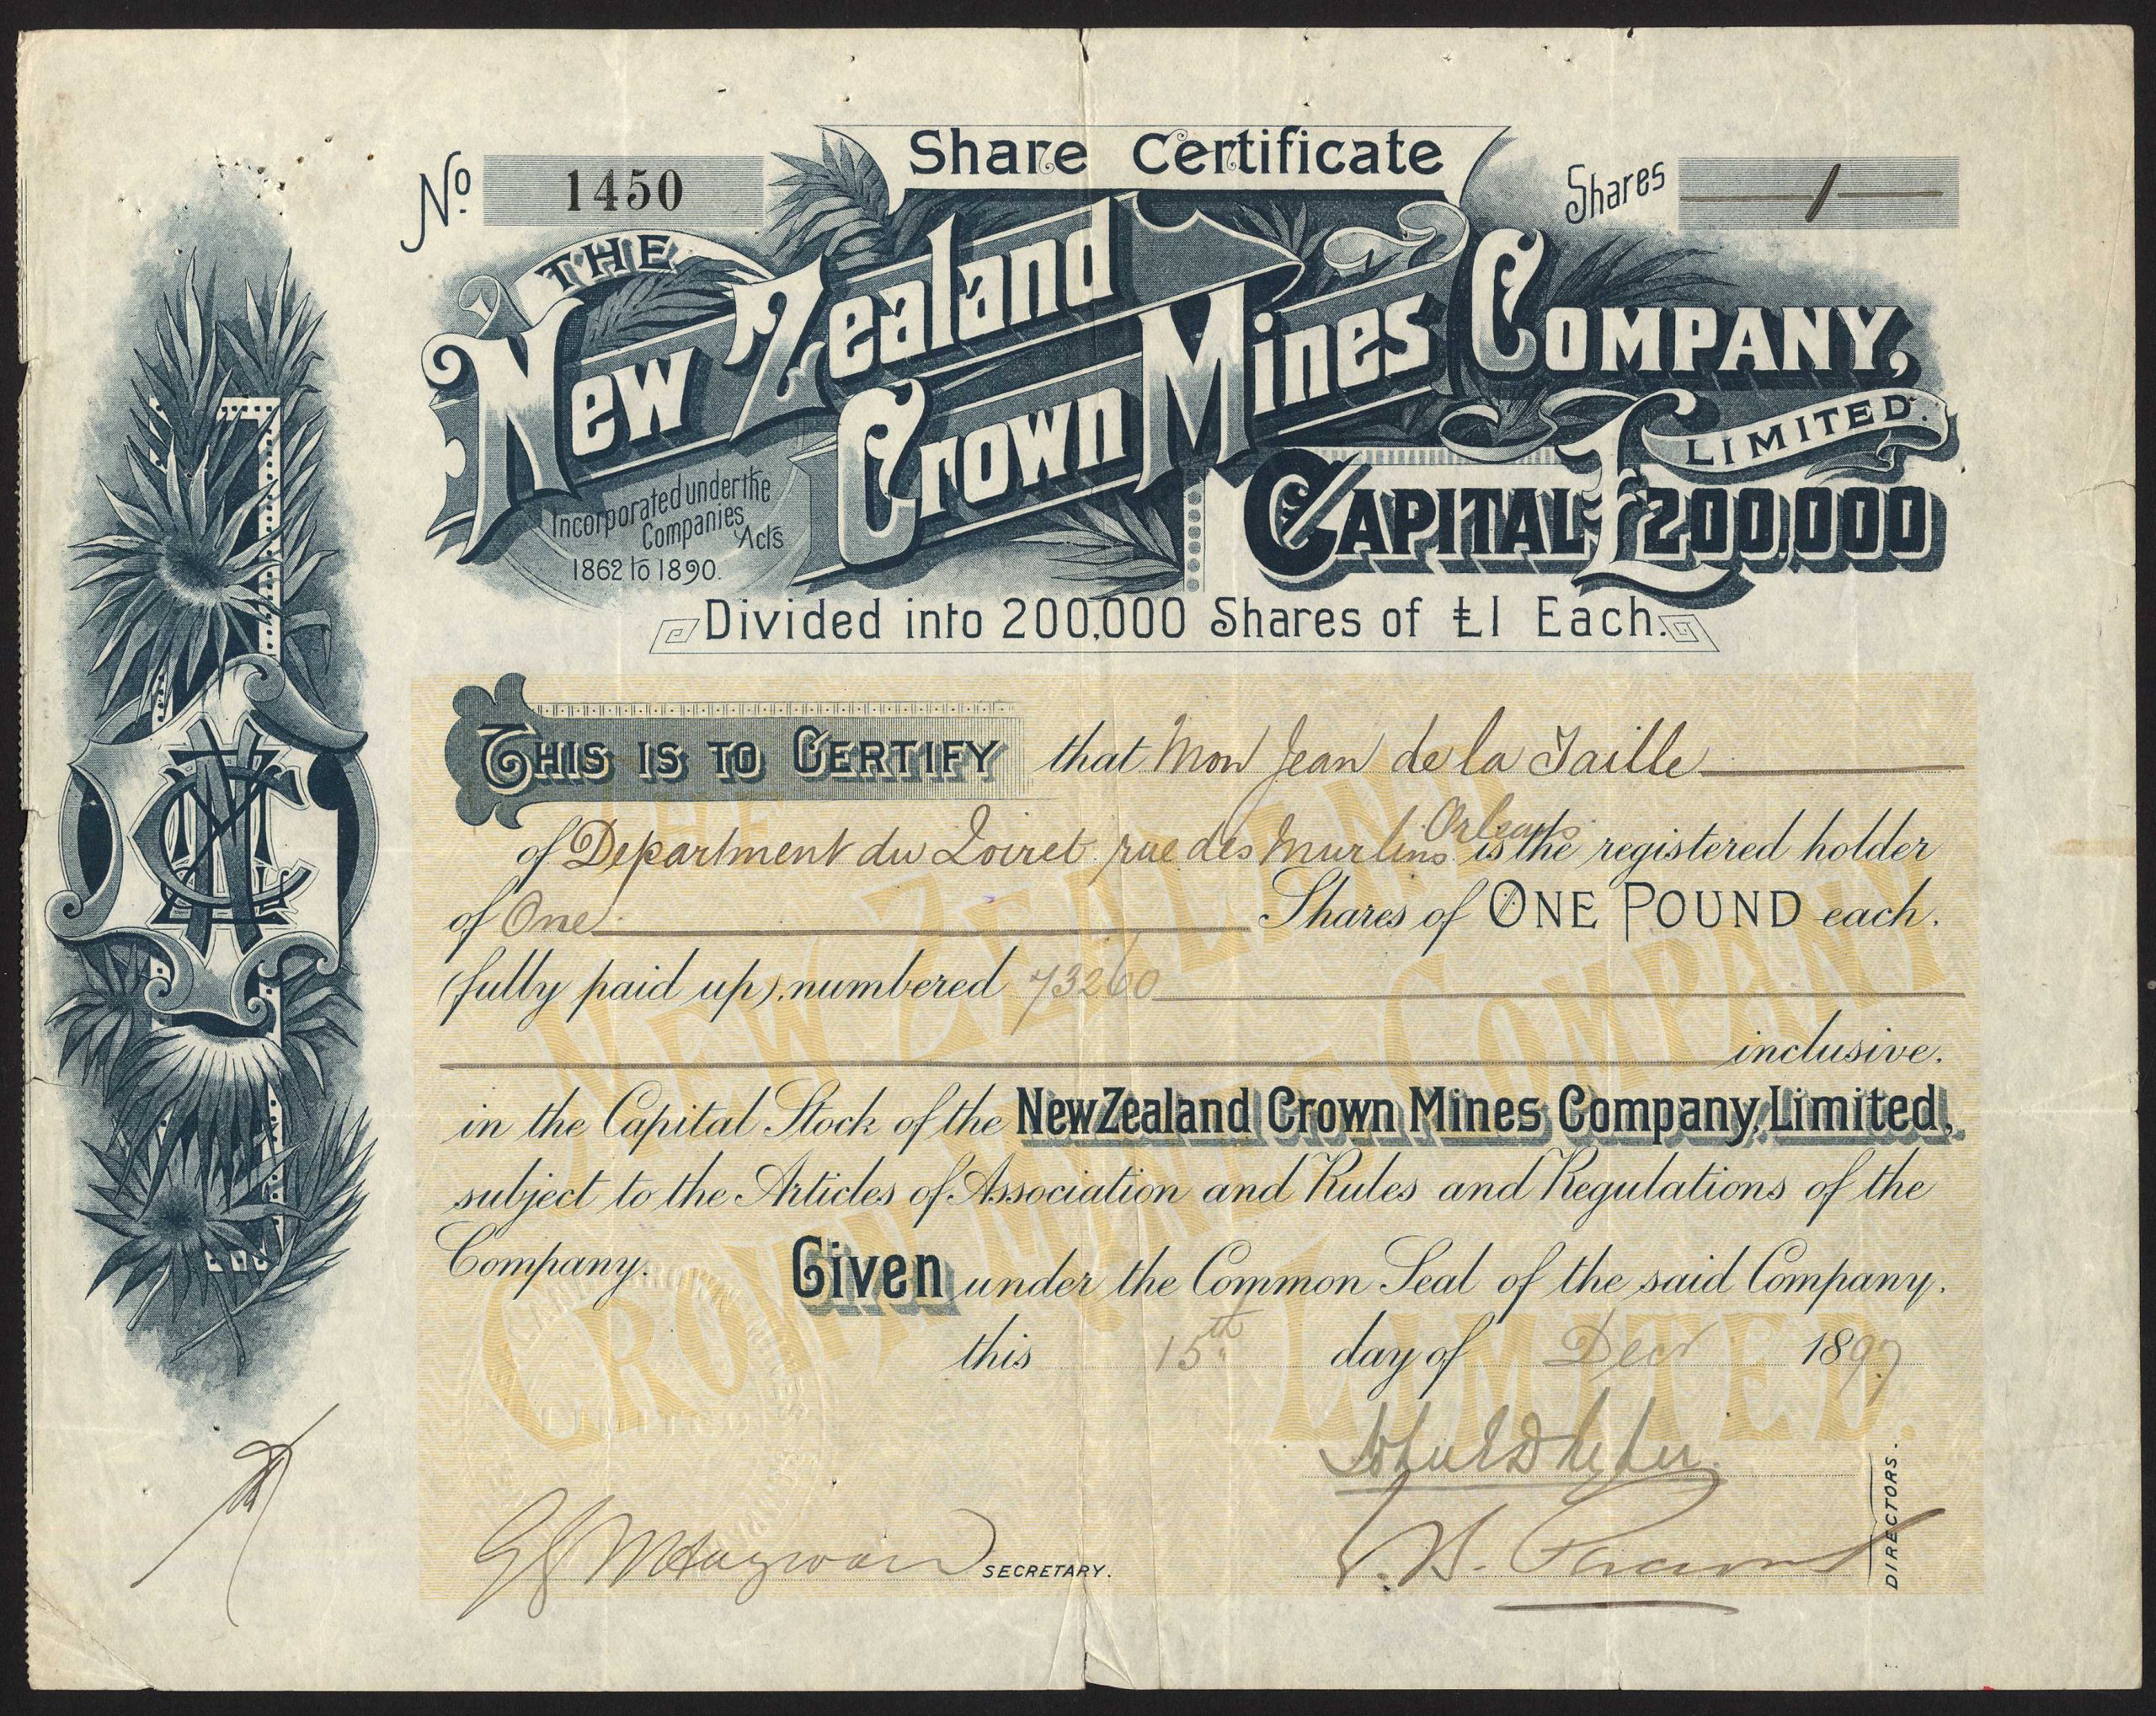 Share Certificate
No. 1450
Shares 1
THE
New Zealand
Crown Mines COMPANY,
LIMITED.
Incorporated under the
Companies Acts
1862 to 1890.
CAPITAL £200,000
Divided into 200,000 Shares of £1 Each.
THIS IS TO CERTIFY that Mon Jean de la Taille
of Department du Loiret rue des Murlins Orleans is the registered holder
of One Shares of ONE POUND each.
(fully paid up), numbered 73260
inclusive.
in the Capital Stock of the New Zealand Crown Mines Company, Limited,
subject to the Articles of Association and Rules and Regulations of the
Company. Given under the Common Seal of the said Company.
this 15th day of Decr 1897
SECRETARY.
DIRECTORS.
THE
NEW ZEALAND
CROWN MINES COMPANY
LIMITED.